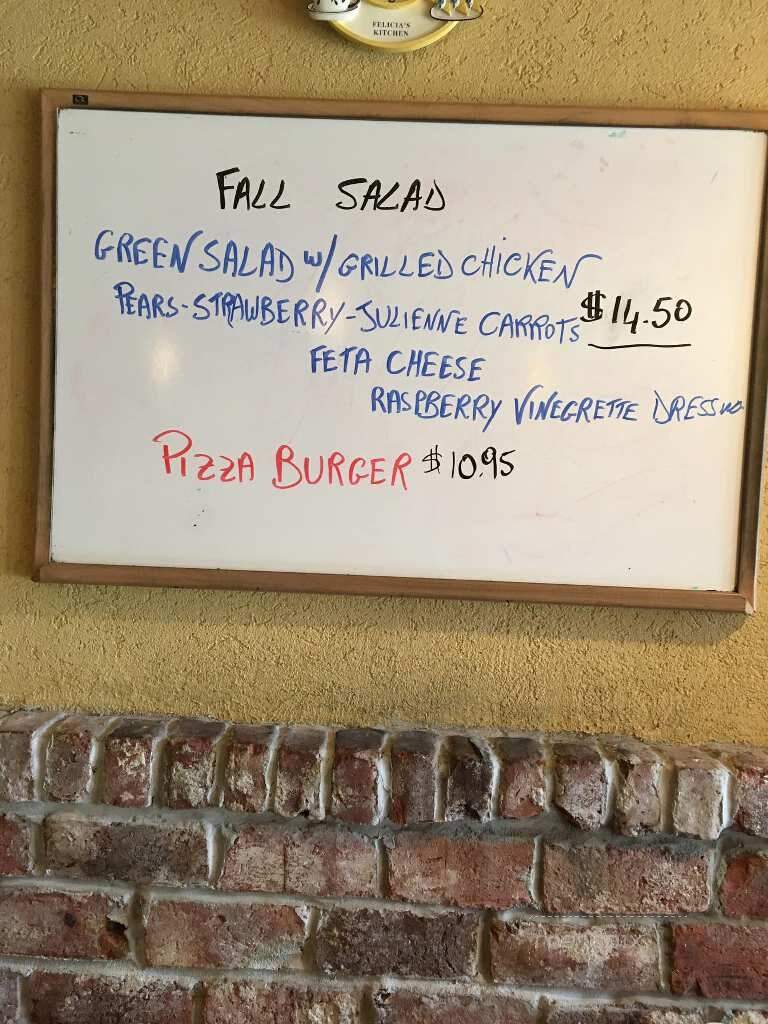 FELICIA'S
KITCHEN
FALL SALAD
GREEN SALAD W/ GRILLED CHICKEN
PEARS-STRAWBERRY-JULIENNE CARROTS $14.50
FETA CHEESE
RASPBERRY VINEGRETTE DRESSING
PIZZA BURGER $10.95